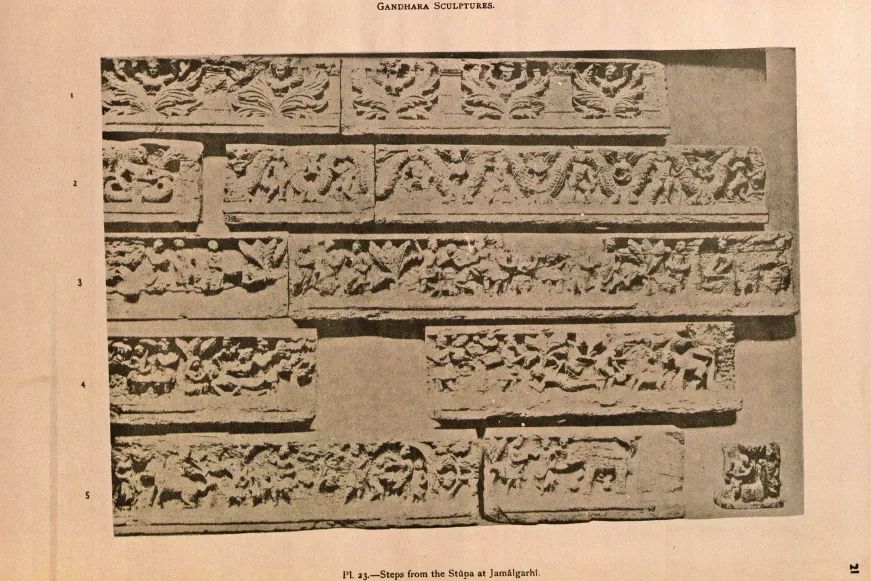 GANDHARA SCULPTURES.
1
2
3
4
5
Pl. 23.—Steps from the Stûpa at Jamâlgarhî.
21